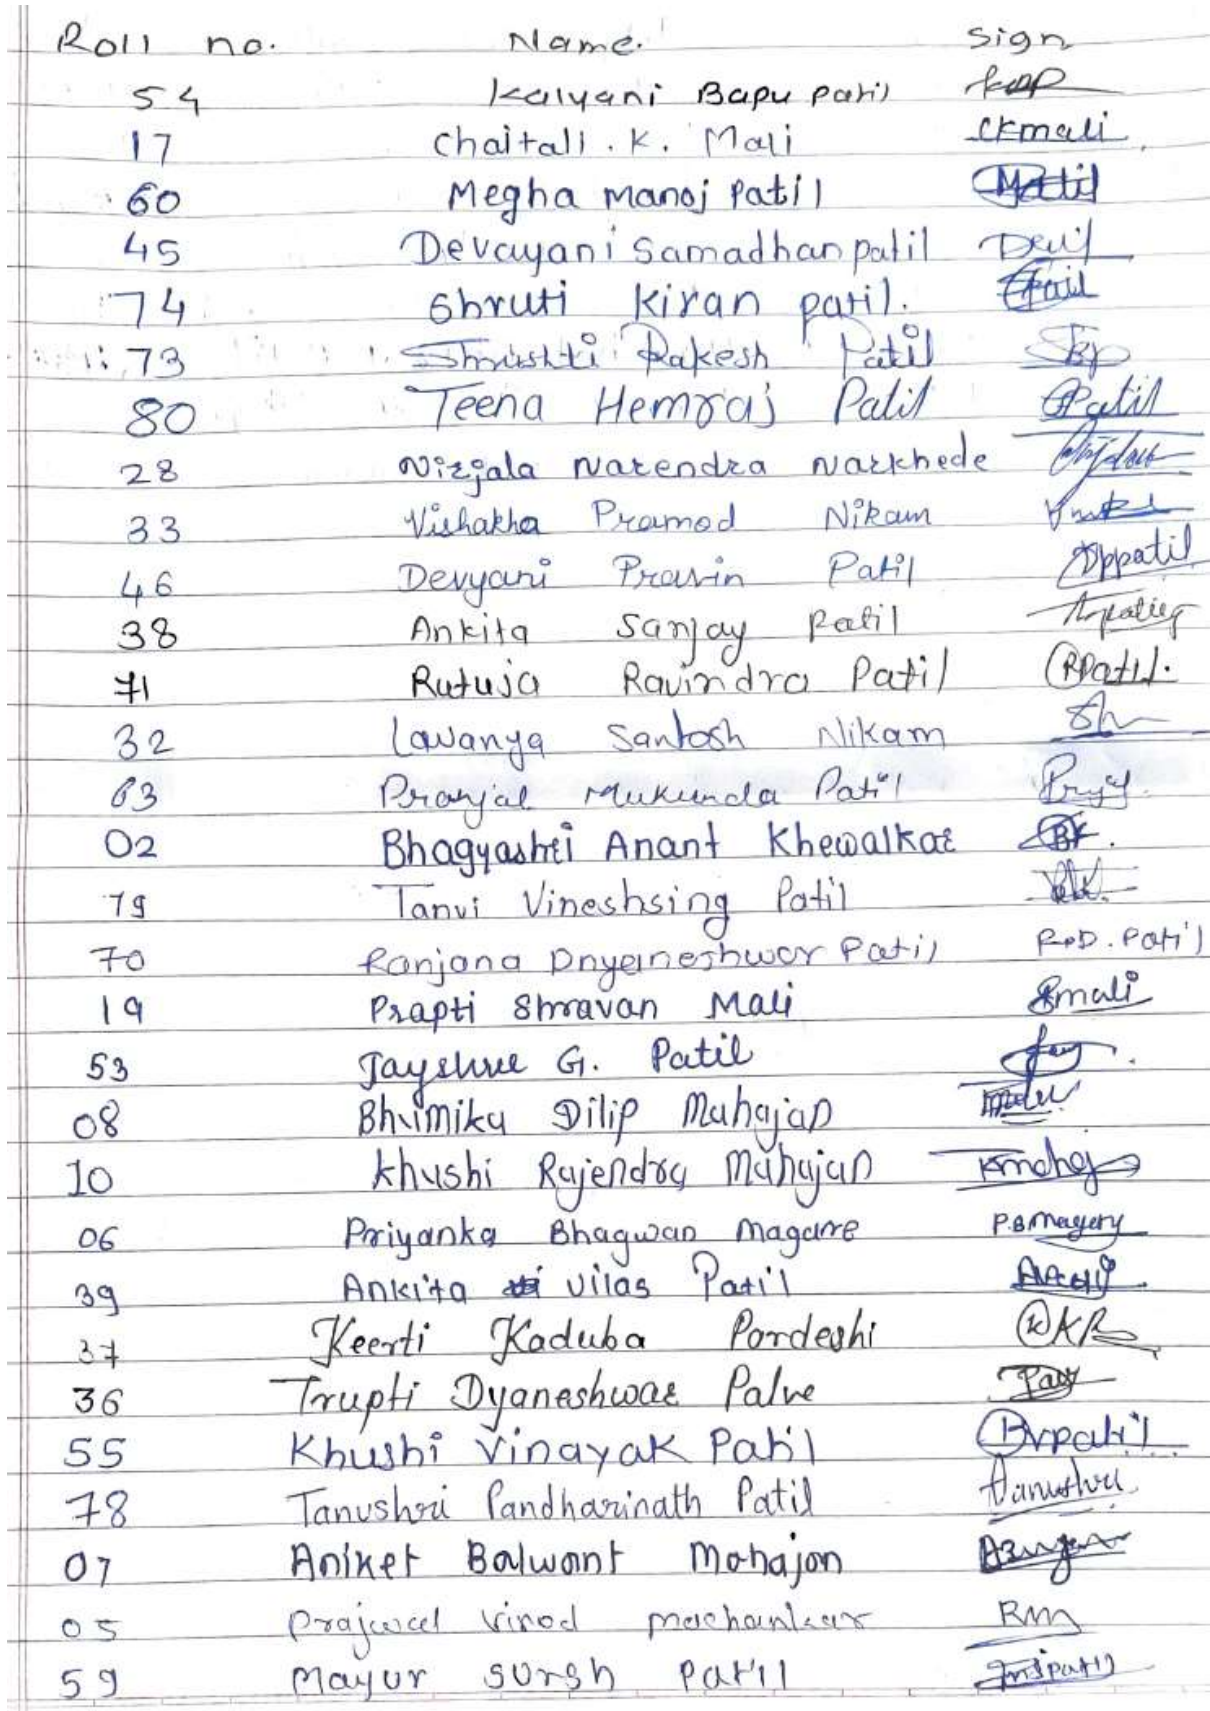 Roll no. Name. Sign
54 Kalyani Bapu Patil
17 Chaitali . K. Mali ckmali
60 Megha Manoj Patil Patil
45 Devayani Samadhan patil
74 Shruti Kiran patil.
73 Shrushti Rakesh Patil
80 Teena Hemraj Patil Patil
28 Nirjala Narendra Narkhede
33 Vishakha Pramod Nikam
46 Devyani Pravin Patil Dppatil
38 Ankita Sanjay Patil
71 Rutuja Ravindra Patil RPatil.
32 Lavanya Santosh Nikam
63 Pranjal Mukunda Patil
02 Bhagyashri Anant Khewalkar BK.
79 Tanvi Vineshsing Patil
70 Ranjana Dnyaneshwar Patil R.D. Patil
19 Prapti Shravan Mali Smali
53 Jayshree G. Patil
08 Bhumika Dilip Mahajan
10 Khushi Rajendra Mahajan
06 Priyanka Bhagwan Magare
39 Ankita Vilas Patil
37 Keerti Kaduba Pardeshi
36 Trupti Dyaneshwar Palve
55 Khushi Vinayak Patil
78 Tanushri Pandharinath Patil Tanushri
07 Aniket Balwant Mahajan
05 Vinod
59 Mayur Sursh Patil